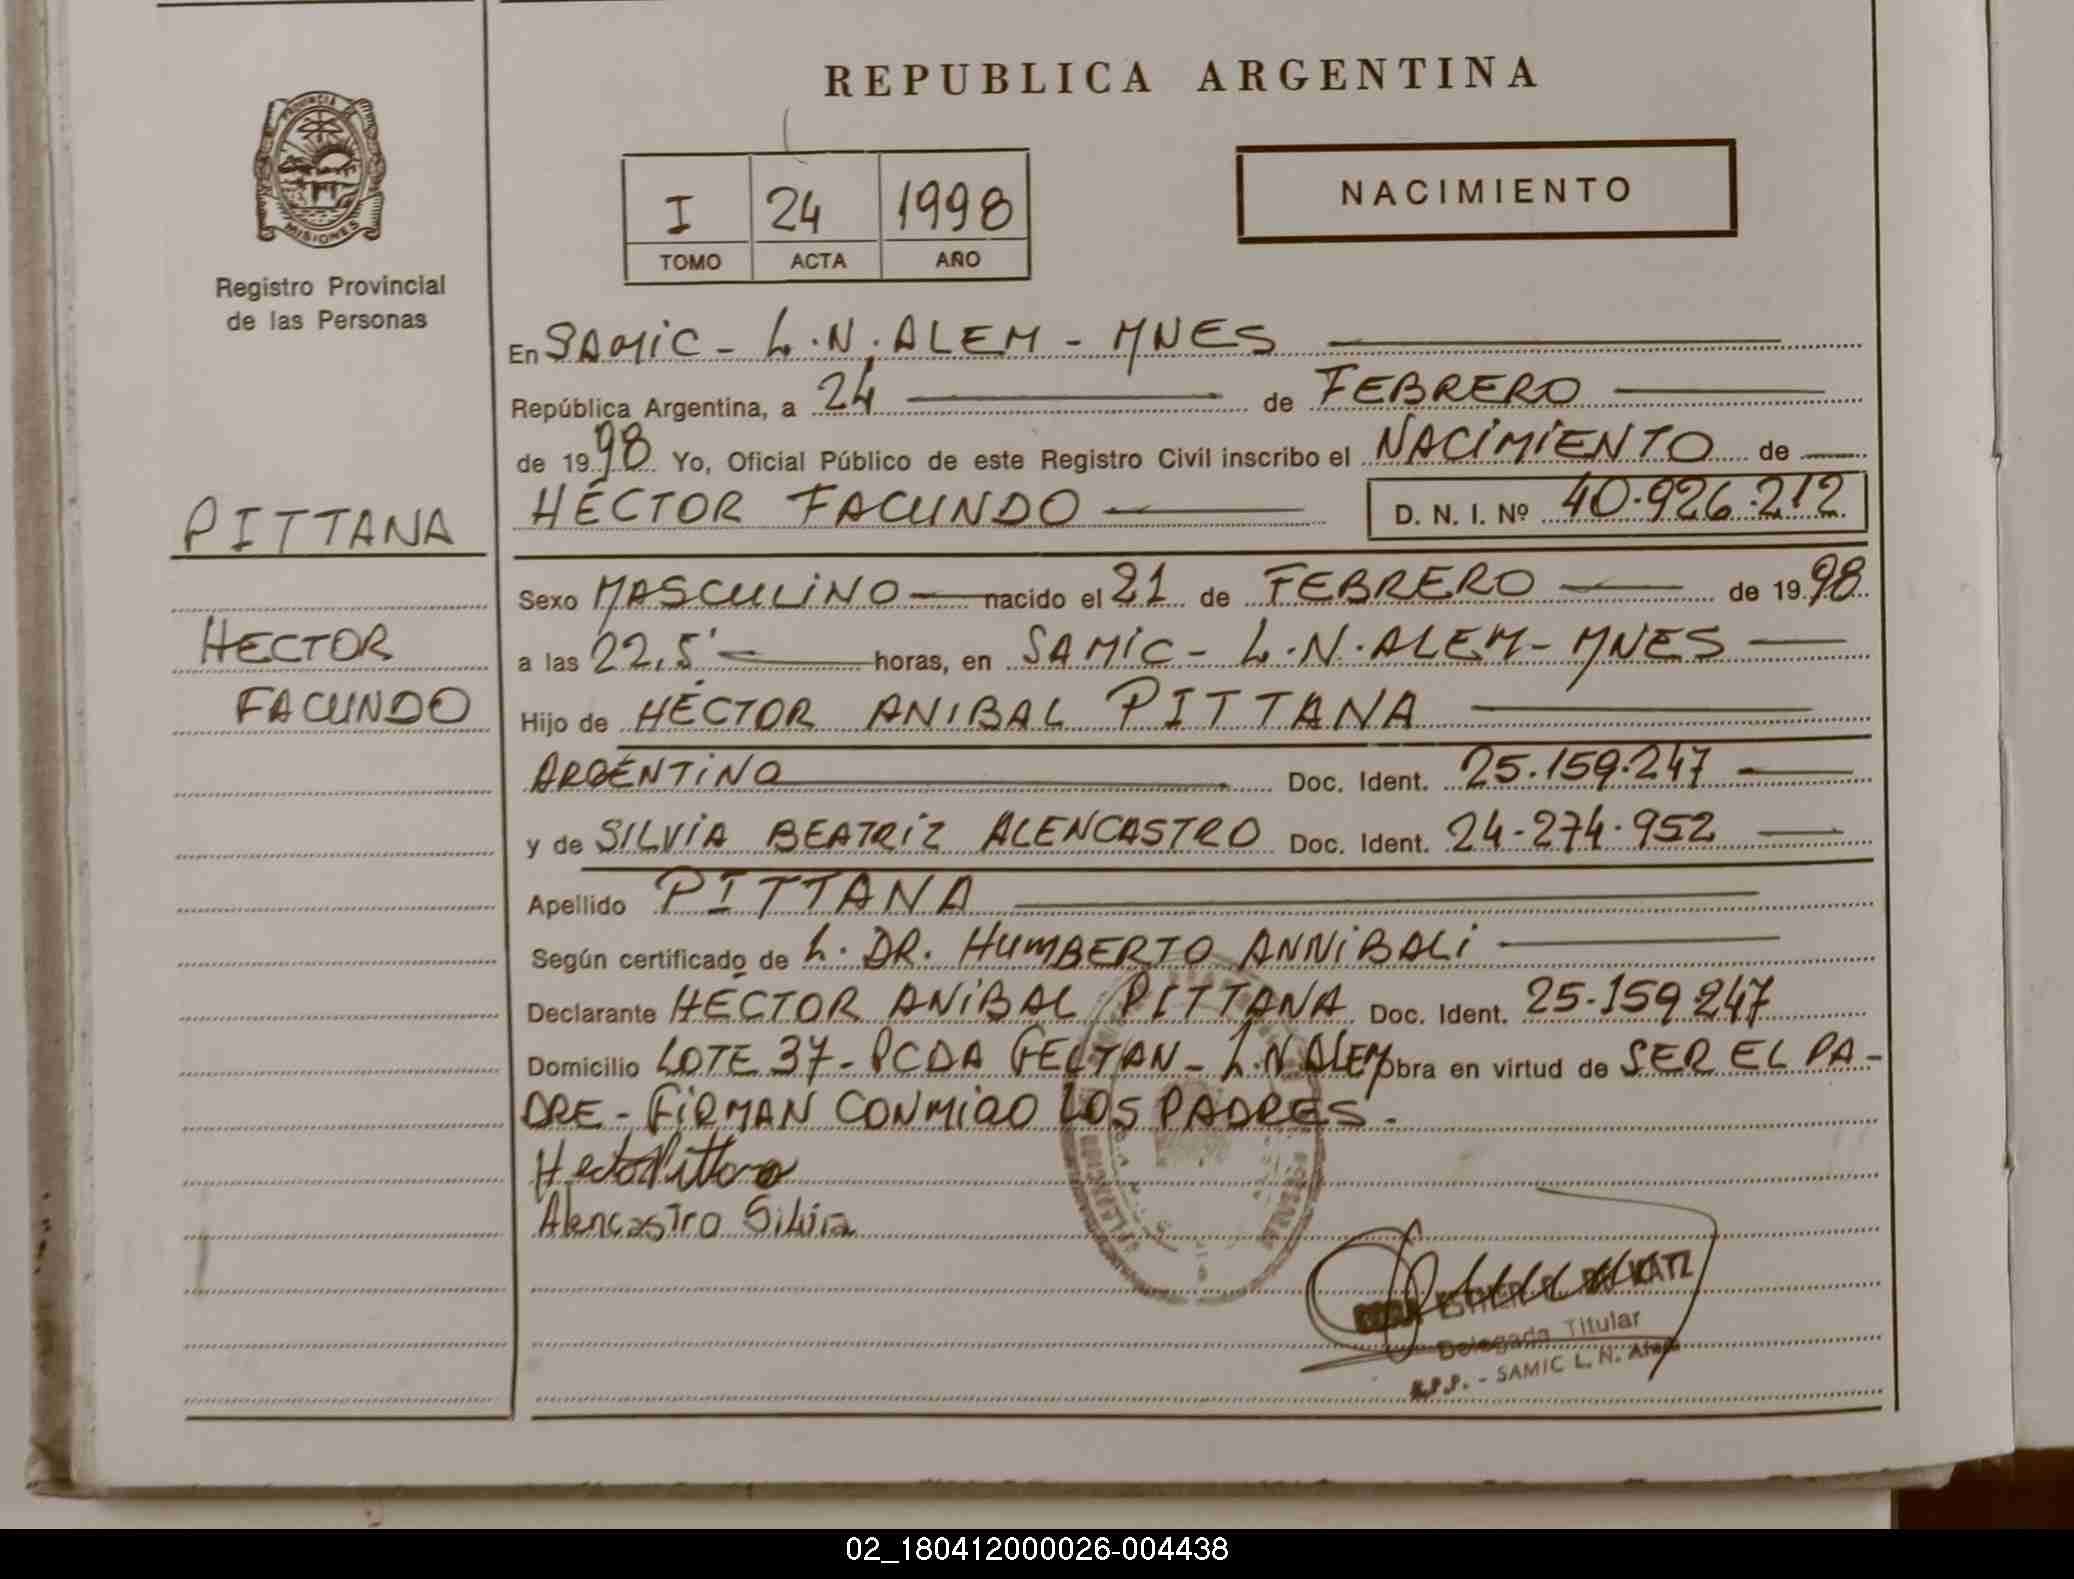 REPUBLICA ARGENTINA
PROVINCIA DE
MISIONES
Registro Provincial
de las Personas
I 24 1998
TOMO ACTA AÑO
NACIMIENTO
En SAMIC - L.N. ALEM - MNES
República Argentina, a 24 de FEBRERO
de 1998 Yo, Oficial Público de este Registro Civil inscribo el NACIMIENTO de
HÉCTOR FACUNDO D. N. I. Nº 40.926.212
PITTANA
HECTOR
FACUNDO
Sexo MASCULINO nacido el 21 de FEBRERO de 1998
a las 22,5' horas, en SAMIC - L.N. ALEM - MNES
Hijo de HÉCTOR ANIBAL PITTANA
ARGENTINO Doc. Ident. 25.159.247
y de SILVIA BEATRIZ ALENCASTRO Doc. Ident. 24-274.952
Apellido PITTANA
Según certificado de L. DR. HUMBERTO ANNIBALI
Declarante HÉCTOR ANIBAL PITTANA Doc. Ident. 25.159.247
Domicilio LOTE 37 - PCDA - L.N ALEM Obra en virtud de SER EL PA-
DRE - FIRMAN CONMIGO LOS PADRES.
Hector Pittana
Alencastro Silvia
Delegada Titular
R.P.P. - SAMIC L. N. Alem
02_180412000026-004438